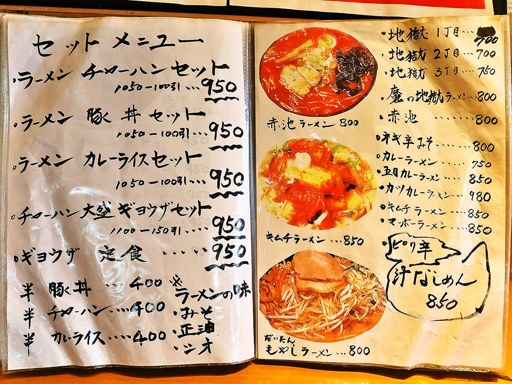 セット メニュー
・ラーメン チャーハン セット
1050-100引...950
・ラーメン 豚丼 セット
1050-100引...950
・ラーメン カレーライス セット
1050-100引...950
・チャーハン 大盛 ギョウザ セット
1100-150引...950
・ギョウザ 定食 ・・・・・ 950
半 豚丼 ... 400
半 チャーハン ... 400
半 カレーライス ... 400
※ラーメンの味
・みそ
・正油
・シオ
赤池ラーメン 800
キムチラーメン ...850
だいたん
もやしラーメン ...800
・地獄 1丁目 ... 700
・地獄 2丁目 ... 700
・地獄 3丁目 ... 750
の地獄ラーメン ... 800
・赤池 ... 800
・ネギ辛みそ ... 800
・カレーラーメン ... 750
カレーラーメン ... 850
・カツカレーラーメン ... 980
・キムチラーメン ... 850
・マーボーラーメン ... 850
ピリ辛
汁なしめん
850